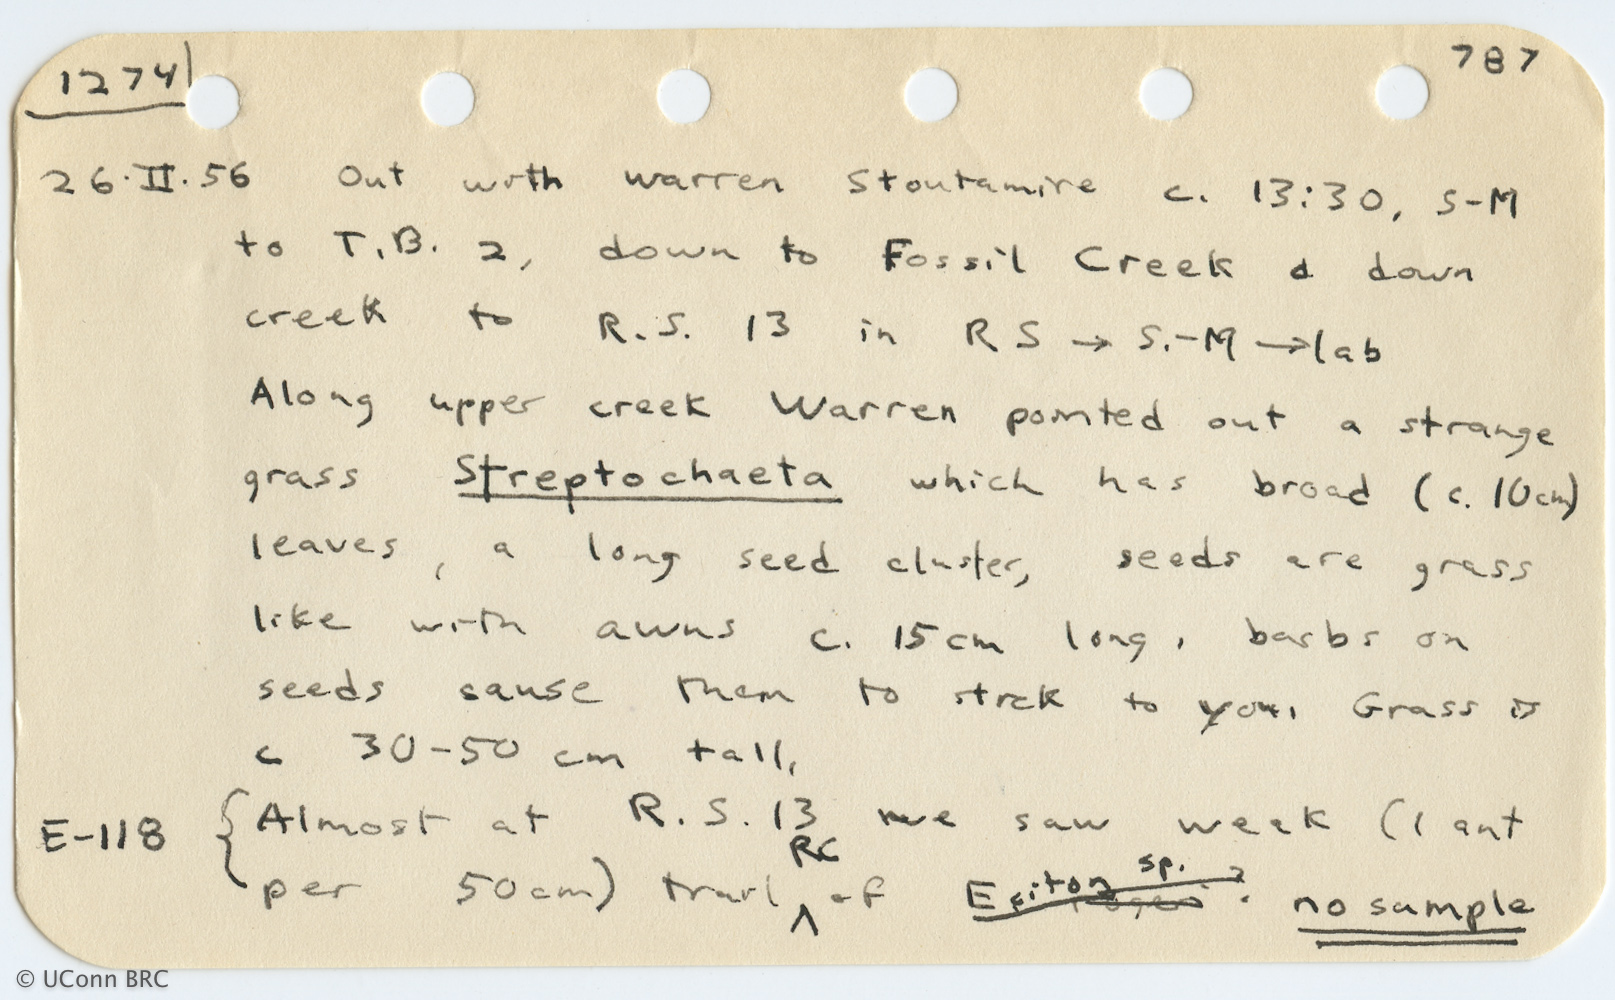 1274
787
26.II.56 Out with Warren Stoutamire c. 13:30, S-M
to T.B. 2, down to Fossil Creek & down
creek to R.S. 13 in RS → S.-M → lab
Along upper creek Warren pointed out a strange
grass Streptochaeta which has broad (c. 10cm)
leaves, a long seed cluster, seeds are grass
like with awns c. 15cm long, barbs on
seeds cause them to stick to you. Grass is
c 30-50 cm tall.
E-118 {Almost at R.S. 13 we saw weak (1 ant
per 50cm) trail ^ RC of Eciton sp. no sample
© UConn BRC